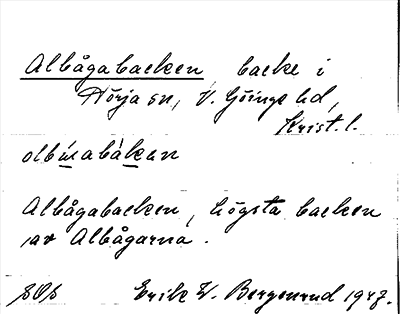 Albågabacken, backe i
Hörja sn, V. Göinge hd,
Krist. l.
olbúnabákan
Albågabacken, högsta backen
av Albågarna.
SOs Erik W. Bergenrud 1947.